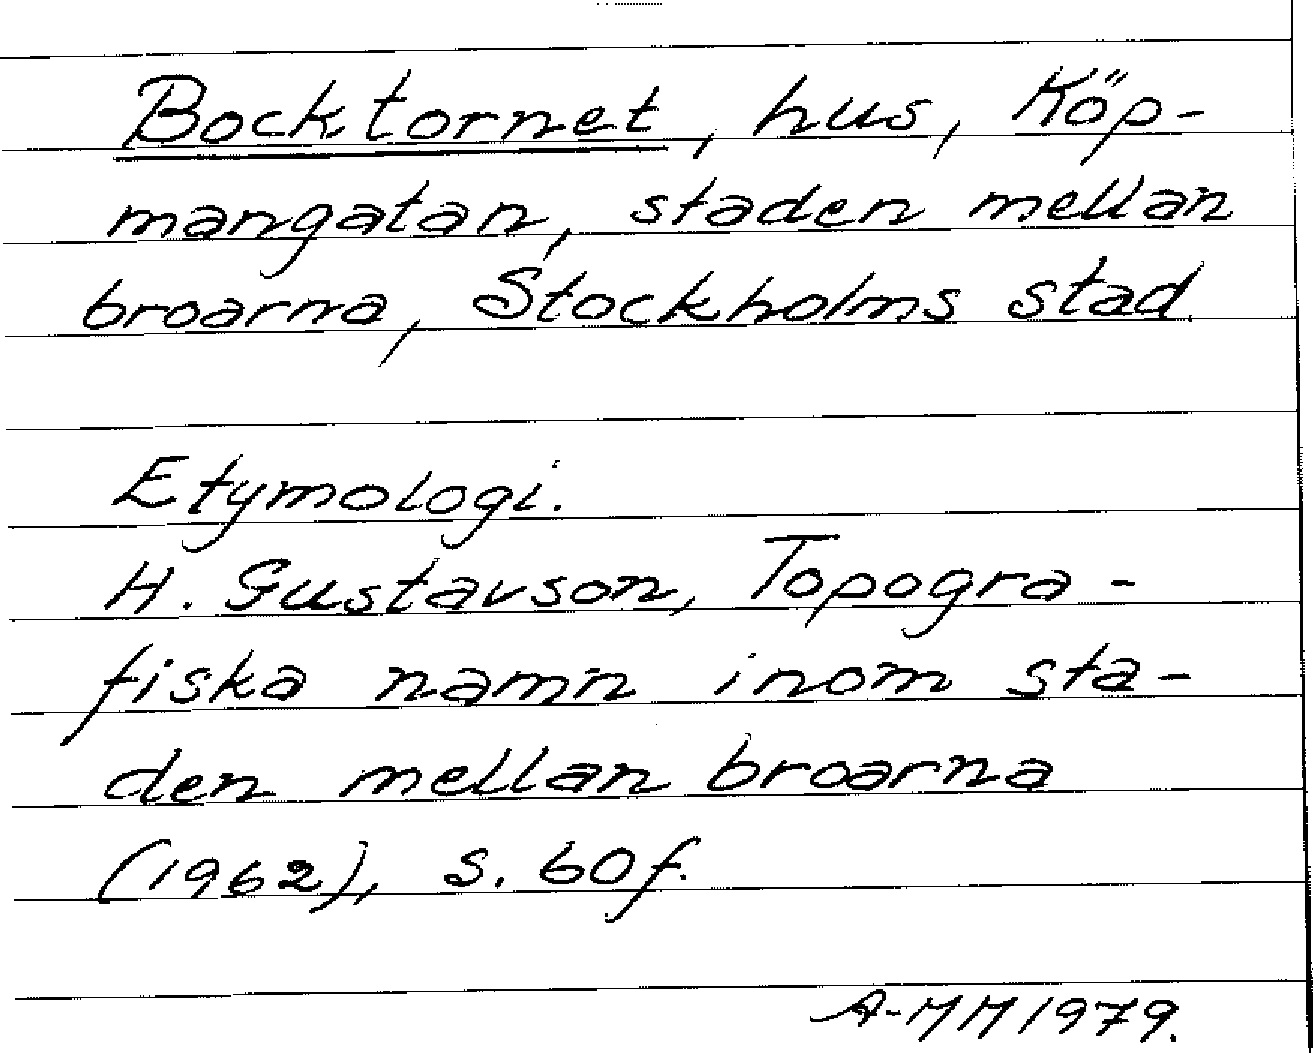 Bocktornet, hus, Köp-
mangatan, staden mellan
broarna, Stockholms stad
Etymologi.
H. Gustavson, Topogra-
fiska namn inom sta-
den mellan broarna
(1962), s. 60f.
A-MM 1979.